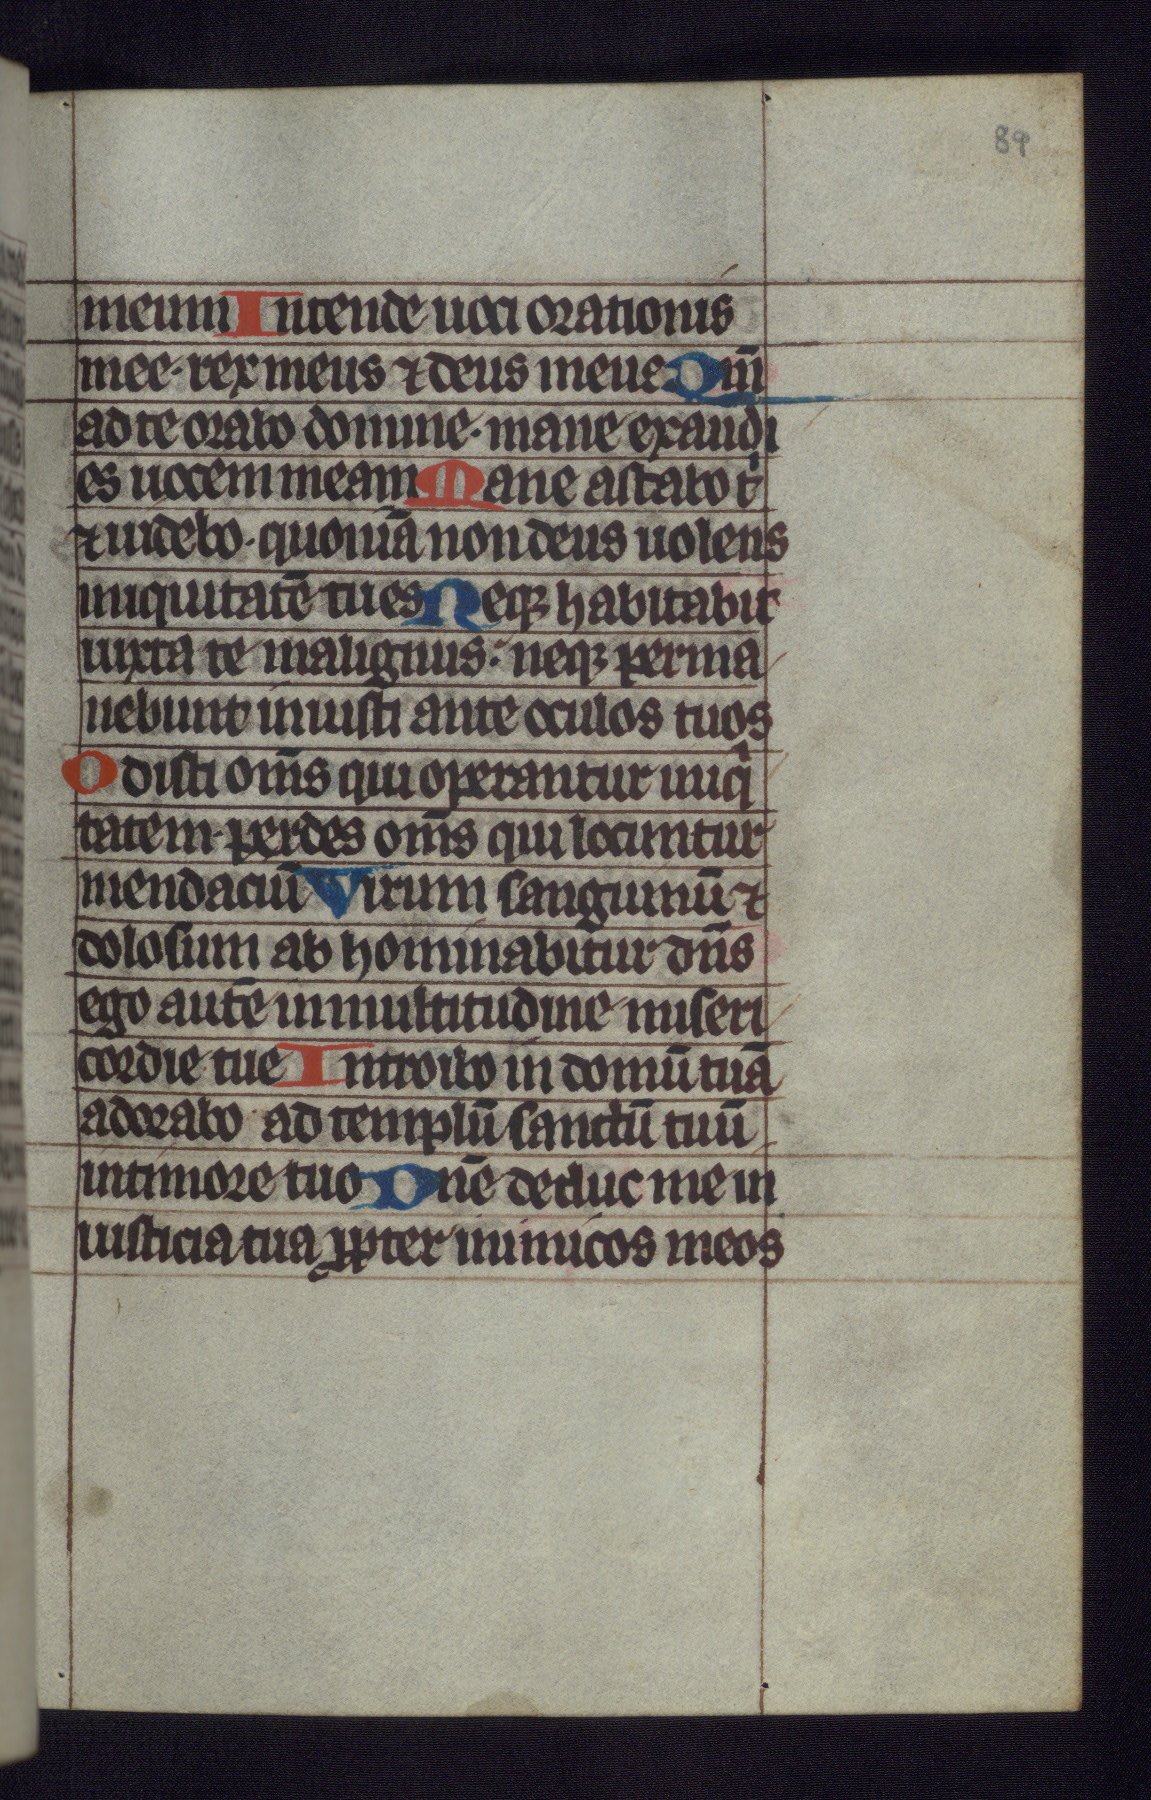 89
meum Intende uoci orationis
mee· rex meus ⁊ deus meus Qm̄
ad te orabo domine· mane exaudi
es uocem meam Mane astabo tͥ
⁊ uidebo· quoniā non deus uolens
iniquitatē tu es Neqꝫ habitabit
iuxta te malignus· neqꝫ perma
nebunt iniusti ante oculos tuos
Odisti om̄s qui operantur iniqͥ
tatem· perdes om̄s qui locuntur
mendaciū Virum sanguinū ⁊
dolosum ab hominabitur dn̄s
ego autē in multitudine miseri
cordie tue Introibo in domū tuā
adorabo ad templū sanctū tuū
in timore tuo Dn̄e deduc me in
iusticia tua ꝓpter inimicos meos